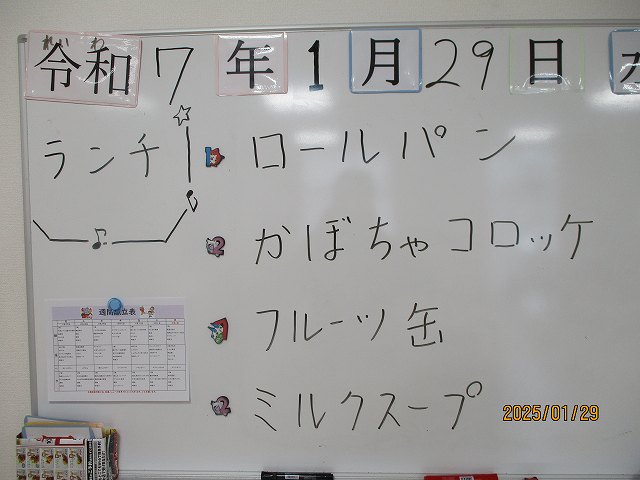 れいわ
令和7年1月29日
ランチ
ロールパン
かぼちゃコロッケ
フルーツ缶
ミルクスープ
週間献立表
2025/01/29